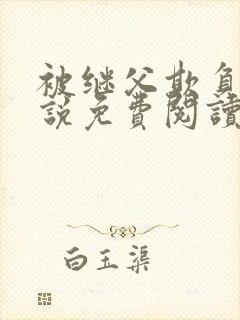 被继父欺負
說免費閱讀
白玉渠